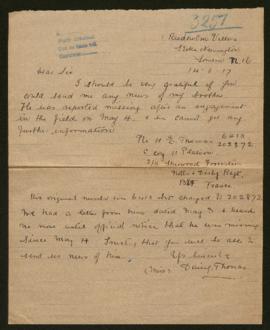 3257
London N 16
14. 6. 17
Dear Sir
I should be very grateful if you
could send me any news of my brother
He was reported missing after an engagement
in the field on May 4. & we cannot get any
further information
Pte H E Thomas 6213
202872
C coy 11 Platoon
2/5 Sherwood Foresters
Notts & Derby Regt.
BEF
France
His original number was 6213 but changed to 202872.
We had a letter from him dated May 3 & heard
no more until official notice that he was missing
since May 4 Trust that you will be able to
send us news of him.
Yrs sincerely
(Miss) Daisy Thomas